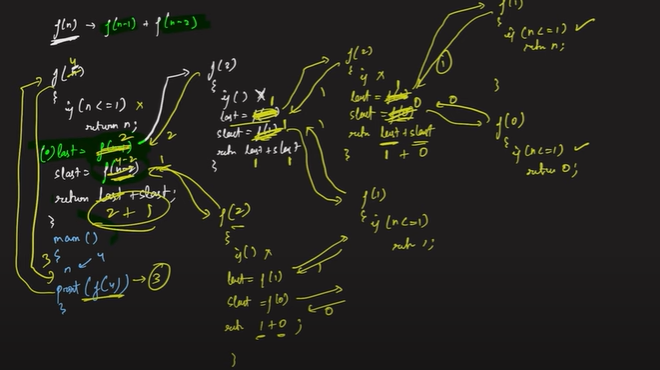 f(n) → f(n-1) + f(n-2)
f(4)
{
if (n <= 1) x
return n;
(0) last = f(n-1) 2
slast = f(n-2) 4-2
return last + slast;
2 + 1
}
main()
{
n ← 4
print (f(4)) → 3
}
3
2
1
f(3)
{
if () x
last = f(2) 1
slast = f(1) 1
retn last + slast
1 1
}
1
1
f(2)
{ if x
last = f(1) 1
slast = f(0) 0
retn last + slast
1 + 0
}
1
0
f(1)
{
if (n <= 1) ✓
retn n;
}
f(0)
{
if (n <= 1) ✓
return 0;
}
f(1)
{ if (n <= 1)
retn 1;
f(2)
{
if () x
last = f(1)
slast = f(0)
retn 1 + 0 ;
}
1
0